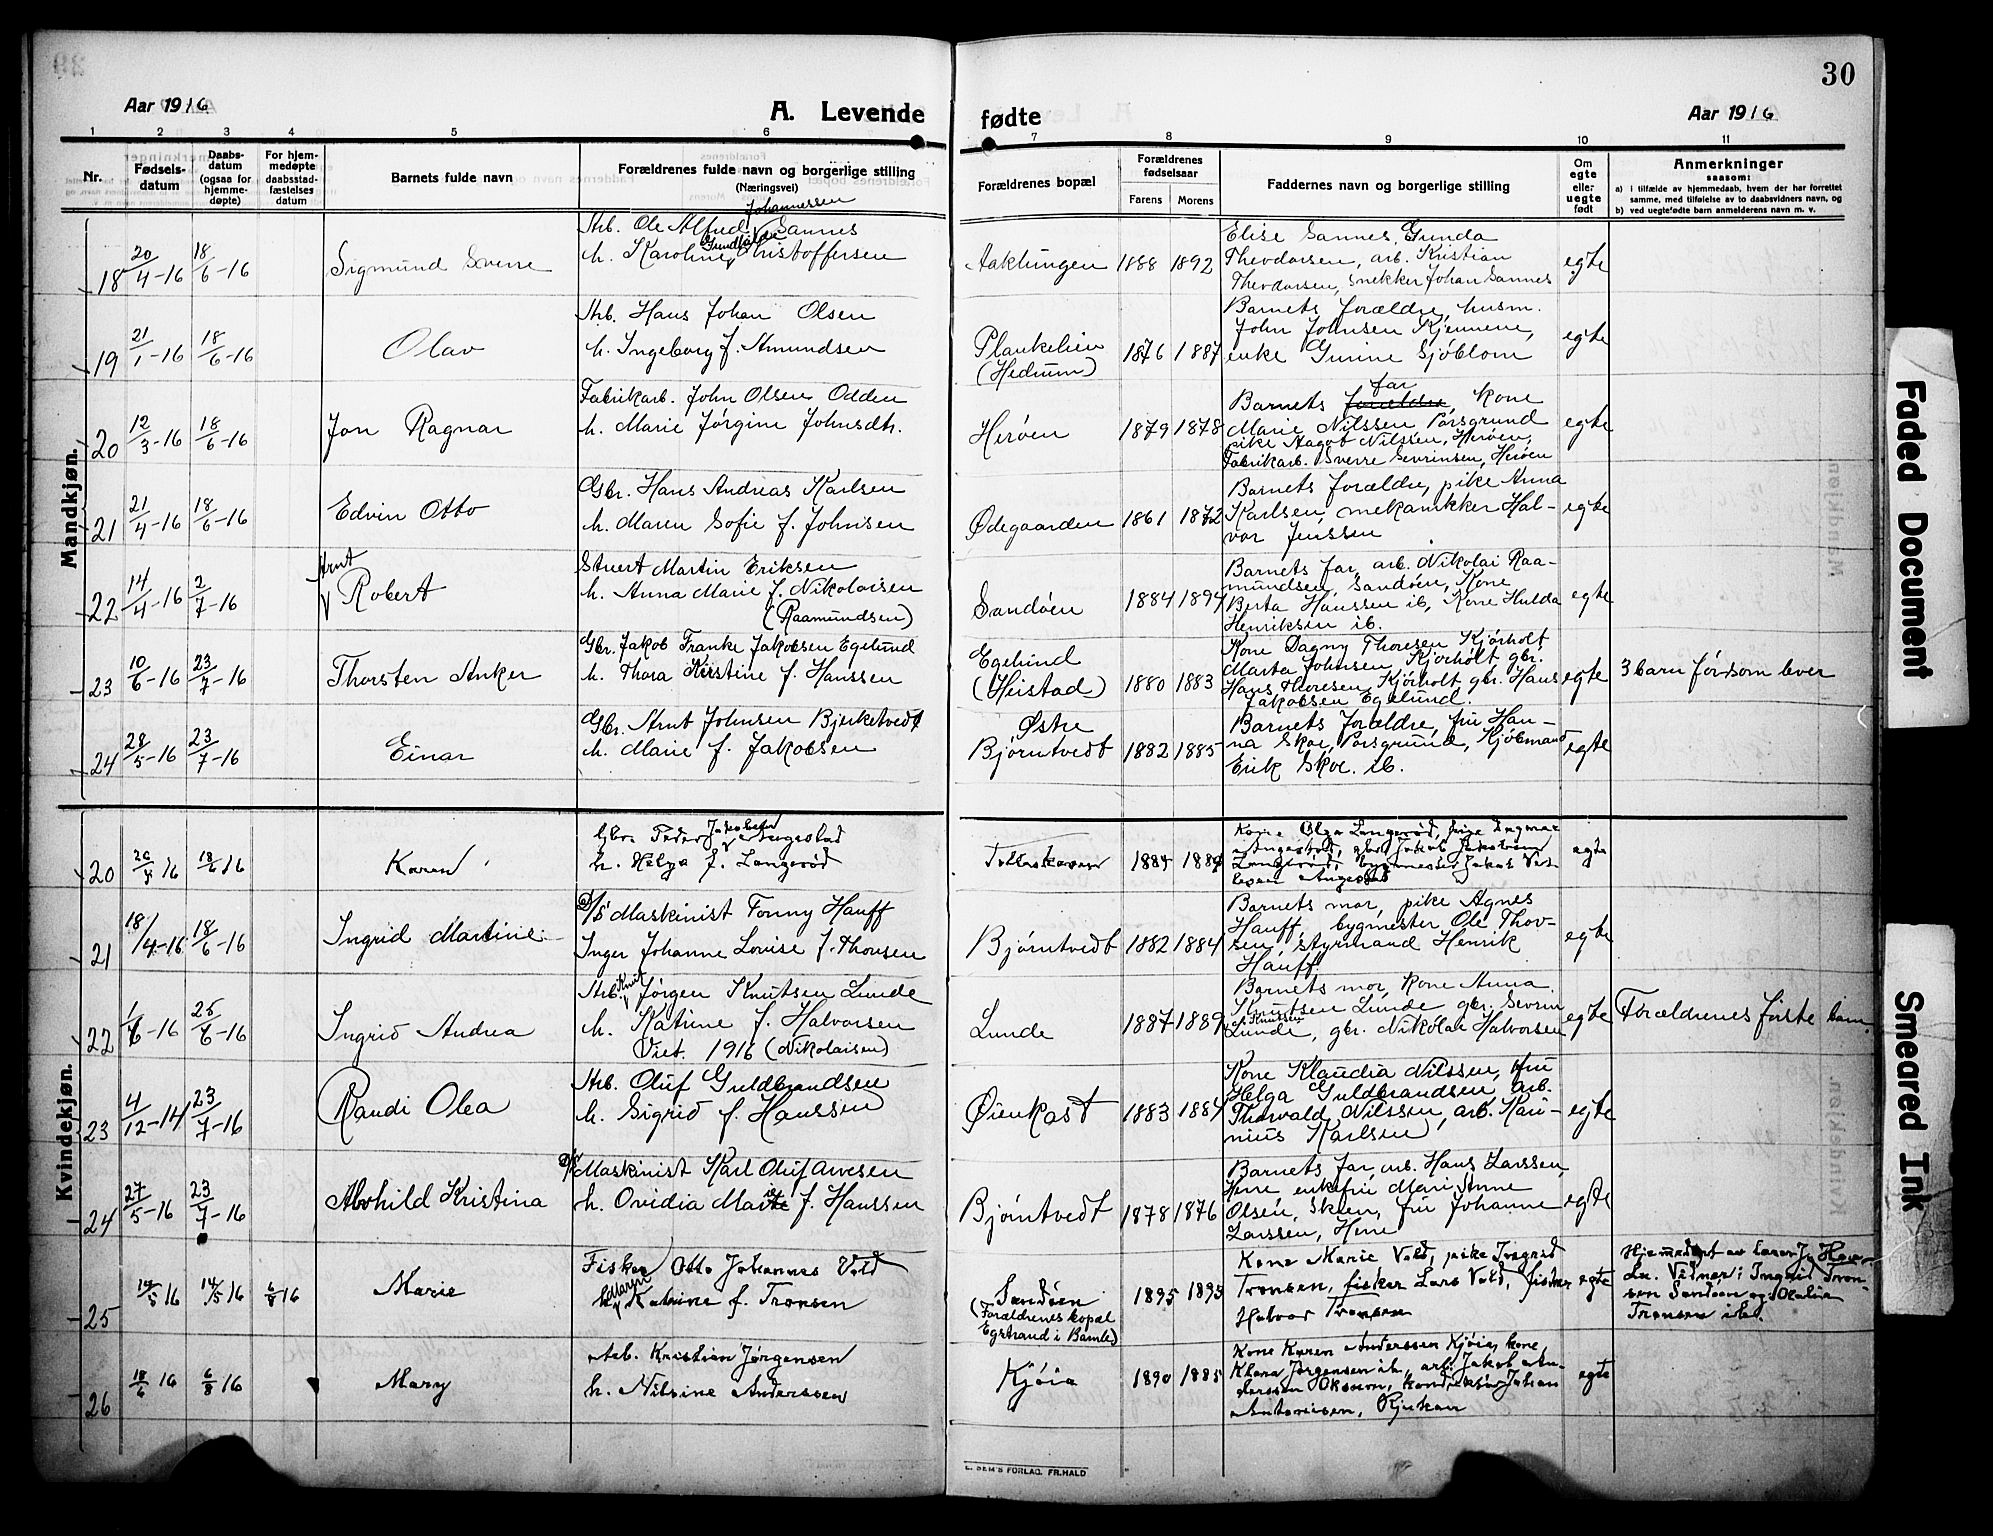 30
Aar 1916 A. Levende fødte Aar 1916
1 2 3 4 5 6 7 8 9 10 11
Nr. Fødsels-datum Daabs-datum (ogsaa for hjemme-døpte) For hjem-medøpte daabsstad-fæstelses datum Barnets fulde navn Forældrenes fulde navn og borgerlige stilling (Næringsvei) Forældrenes bopæl Forældrenes fødselsaar Farens Morens Faddernes navn og borgerlige stilling Om egte eller uegte født Anmerkninger saasom:
a) i tilfælde av hjemmedaab, hvem der har forrettet samme, med tilføielse av to daabsvidners navn, og
b) ved uegtefødte barn anmelderens navn m. v.
Mandkjøn.
18 20/4-16 18/6-16 Sigmund Sverre
Arb. Ole Alfred Johannessen Sannes
h. Karoline Gundhilde Kristoffersen
Aaklungen 1888 1892
Elise Sannes, Gunda
Theodorsen, arb. Kristian
Theodorsen, Snekker Johan Sannes
egte
19 21/1-16 18/6-16 Olav
Arb. Hans Johan Olsen
h. Ingeborg f. Amundsen
Plankelien
(Hedrum)
1876 1887
Barnets forældre, husm.
John Johnsen Kjennene,
enke Gunine Sjöblom
egte
20 12/3-16 18/6-16 Jon Ragnar
Fabrikarb. John Olsen Odden
h. Marie Jørgine Johnsdtr.
Herøen 1879 1878
Barnets forældre far Kone
Marie Nilssen Porsgrund
pike Aagot Nilssen, Herøen,
Fabrikarb. Sverre Sevrinsen, Herøen
egte
21 21/4-16 18/6-16 Edvin Otto
Gbr. Hans Andreas Karlsen
h. Maren Sofie f. Johnsen
Ødegaarden 1861 1872
Barnets forældre, pike Anna
Karlsen, mekanikker Hal-
vor Jenssen
egte
22 14/4-16 2/7-16 Arnt Robert
Stuert Martin Eriksen
h. Anna Marie f. Nikolaisen
(Raamundsen)
Sandøen 1884 1894
Barnets far, arb. Nikolai Raa-
mundsen, Sandøen, Kone
Berta Hanssen ib, Kone Hulda
Henriksen ib.
egte
23 10/6-16 23/7-16 Thorsten Anker
Gbr. Jakob Franke Jakobsen Egelund
h. Thora Kirstine f. Hanssen
Egelund
(Heistad)
1880 1883
Kone Dagny Thoresen Kjørholt
Marta Johnsen, Kjørholt gbr.
Hans Thoresen, Kjørholt gbr. Hans
Jakobsen Egelund.
egte
3 barn før som lever
24 28/5-16 23/7-16 Einar
Gbr. Arnt Johnsen Bjerketvedt
h. Marie f. Jakobsen
Østre
Bjørntvedt
1882 1885
Barnets forældre, fru Han-
na Skoe, Porsgrund, Kjøbmand
Erik Skoe. ib.
egte
Kvindekjøn.
20 18/6 16 Karen
Gbr. Peder Jakobsen Angestad
h. Helga f. Langerød
1884
Kone Olga Langerød, pike Dagmar
Angestad, gbr. Jakob Jakobsen
Langerød, bygmester Jakob
Angestad
egte
21 18/4-16 18/6-16 Ingrid Martine
D/S Maskinist Tonny Hauff
Inger Johanne Lovise f. Thorsen
Bjørntvedt 1882 1884
Barnets mor, pike Agnes
Hauff, bygmester Ole Thor-
sen, styrmand Henrik
Hauff.
egte
22 1/6-16 25/6-16 Ingrid Andrea
Arb. Knut Jørgen Knutsen Lunde
h. Katrine f. Halvorsen
Viet. 1916 (Nikolaisen)
Lunde 1887 1889
Barnets mor, kone Anna
Knutsen Lunde gbr. Sevrin
Knutsen
Lunde, gbr. Nikolai Halvorsen
egte
Forældrenes første barn.
23 4/12-14 23/7-16 Randi Olea
Arb. Oluf Guldbrandsen
h. Sigrid f. Hanssen
Øienkast 1883 1884
Kone Klaudia Nilssen, fru
Helga Guldbrandsen arb.
Thorvald Nilssen, arb. Kau-
nius Karlsen
egte
24 27/5-16 23/7-16 Alvhild Kristina
D/S Maskinist Karl Oluf Arvesen
h. Ovidia Marie f. Hanssen
Bjørntvedt 1878 1876
Barnets far, arb. Hans Larssen
Herre enkefru Mari Anne
Olsen, Skien, fru Johanne
Larssen, Herre
egte
25 14/5 16 Marie
Fisker Otto Johannes Vold
h. Maren Katrine f. Tronsen
Sandöen
(Forældrenes bopæl
Egstrand i Bamle)
1895 1893
Kone Marie Vold, pike Ingrid
Tronsen, fisker Lars Vold, fisker
Halvor Tronsen
egte
Hjemmedøpt av lærer J.
Vidner: Ingrid Tron-
sen Sandöen og
Tronsen ibd.
26 18/6 16 6/8 16 Mary
Arb. Kristian Jørgensen
h. Nilsine Anderssen
Kjøia 1890 1885
Kone Karen Anderssen Kjøia, kone
Klara Jørgensen ib., arb. Jakob An-
derssen Johan
Antonisen, Rjukan
egte
E. SEM'S FORLAG. FR.HALD
Faded Document
Smeared Ink